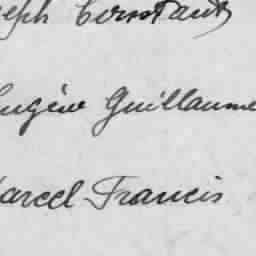 seph Constant
Eugène Guillaume
Marcel Francis